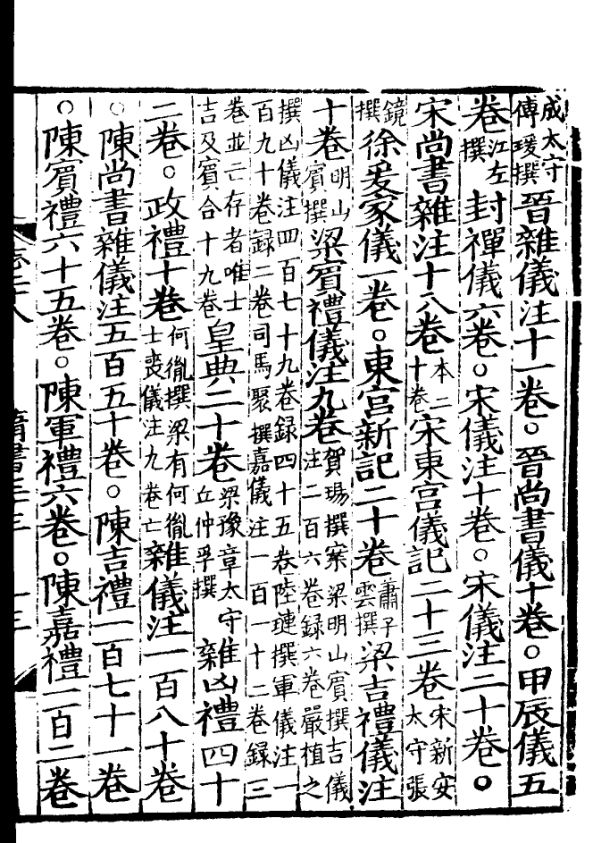 成太守傅瑗撰晉雜儀注十一卷。晉尚書儀十卷。甲辰儀五
卷江左撰封禪儀六卷。宋儀注十卷。宋儀注二十卷。
宋尚書雜注十八卷本二十卷宋東宮儀記二十三卷宋新安太守張
鏡撰徐爰家儀一卷。東宮新記二十卷蕭子雲撰梁吉禮儀注
十卷明山賓撰梁賓禮儀注九卷賀瑒撰案梁明山賓撰吉儀注二百六卷録六卷嚴植之
撰凶儀注四百七十九卷録四十五卷陸璉撰軍儀注一百九十卷録二卷司馬褧撰嘉儀注一百一十二卷録三
卷並亡存者唯士吉及賓合十九卷皇典二十卷梁豫章太守丘仲孚撰雜凶禮四十
二卷。政禮十卷何胤撰梁有何胤士喪儀注九卷亡雜儀注一百八十卷
。陳尚書雜儀注五百五十卷。陳吉禮一百七十一卷
。陳賓禮六十五卷。陳軍禮六卷。陳嘉禮一百二卷